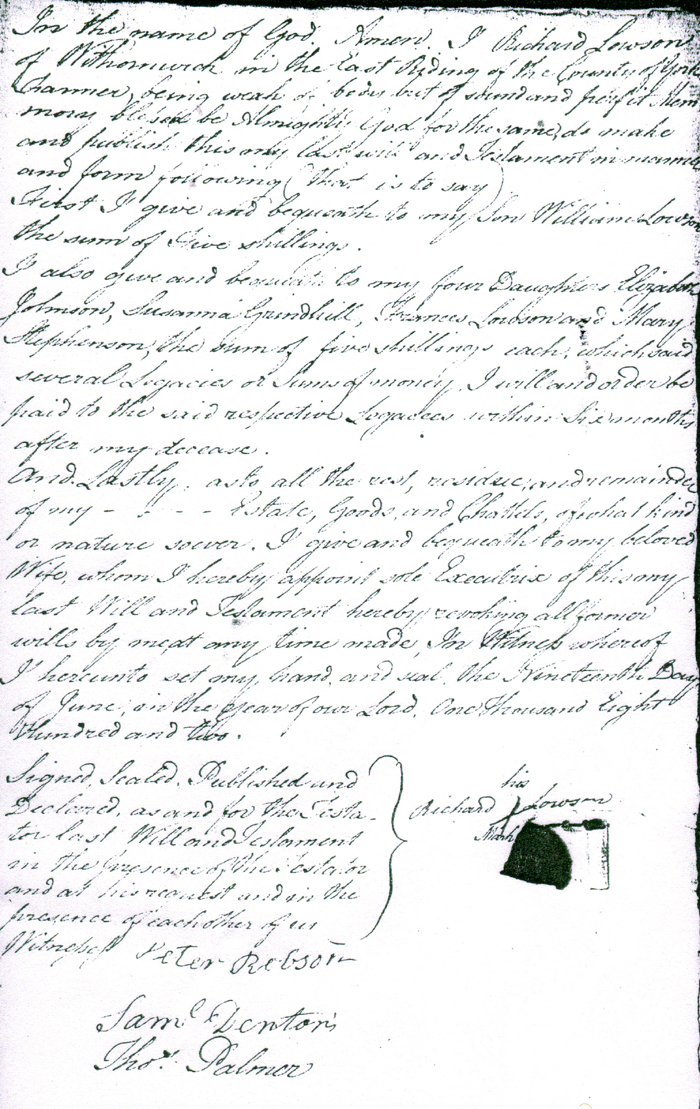 In the name of God Amen. I Richard Lowson
of Withornwick in the East Riding of the County of York
Farmer, being weak of body but of sound and perfect Mem
mory blessed be Almighty God for the same, do make
and publish this my last will and Testament in manner
and form following (that is to say)
First I give and bequeath to my Son William Lowson
the sum of Five shillings.
I also give and bequeath to my four Daughters Elizabeth
Johnson, Susanna Grindhill, Frances Lowson and Mary
Stephenson, the sum of five shillings each, which said
several Legacies or Sums of money, I will and order be
paid to the said respective Legacees within Six months
after my decease.
And Lastly, as to all the rest, residue, and remainder
of my - - - - Estate, Goods, and Chattels, of what kind
or nature soever. I give and bequeath to my beloved
Wife, whom I hereby appoint sole Executrix of this my
last Will and Testament hereby revoking all former
wills by me at any time made, In Witness whereof
I hereunto set my hand and seal the Nineteenth Day
of June, in the Year of our Lord, One thousand Eight
Hundred and two.
Signed, Sealed, Published and
Declared, as and for the Testa-
tor last Will and Testament
in the presence of the Testator
and at his request and in the
presence of each other of us
Witnesses
his
Richard Lowson
Mark
Peter Robson
Saml Denton
Thos Palmer